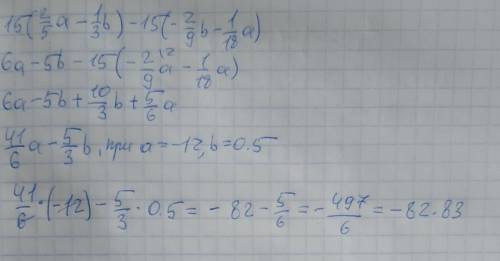 15(2/5a - 1/3b) - 15(-2/9b - 1/18a)
6a - 5b - 15(-2/9a - 1/18a)
6a - 5b + 10/3b + 5/6a
41/6a - 5/3b, при a = -12, b = 0.5
41/6 · (-12) - 5/3 · 0.5 = - 82 - 5/6 = - 497/6 = - 82.83